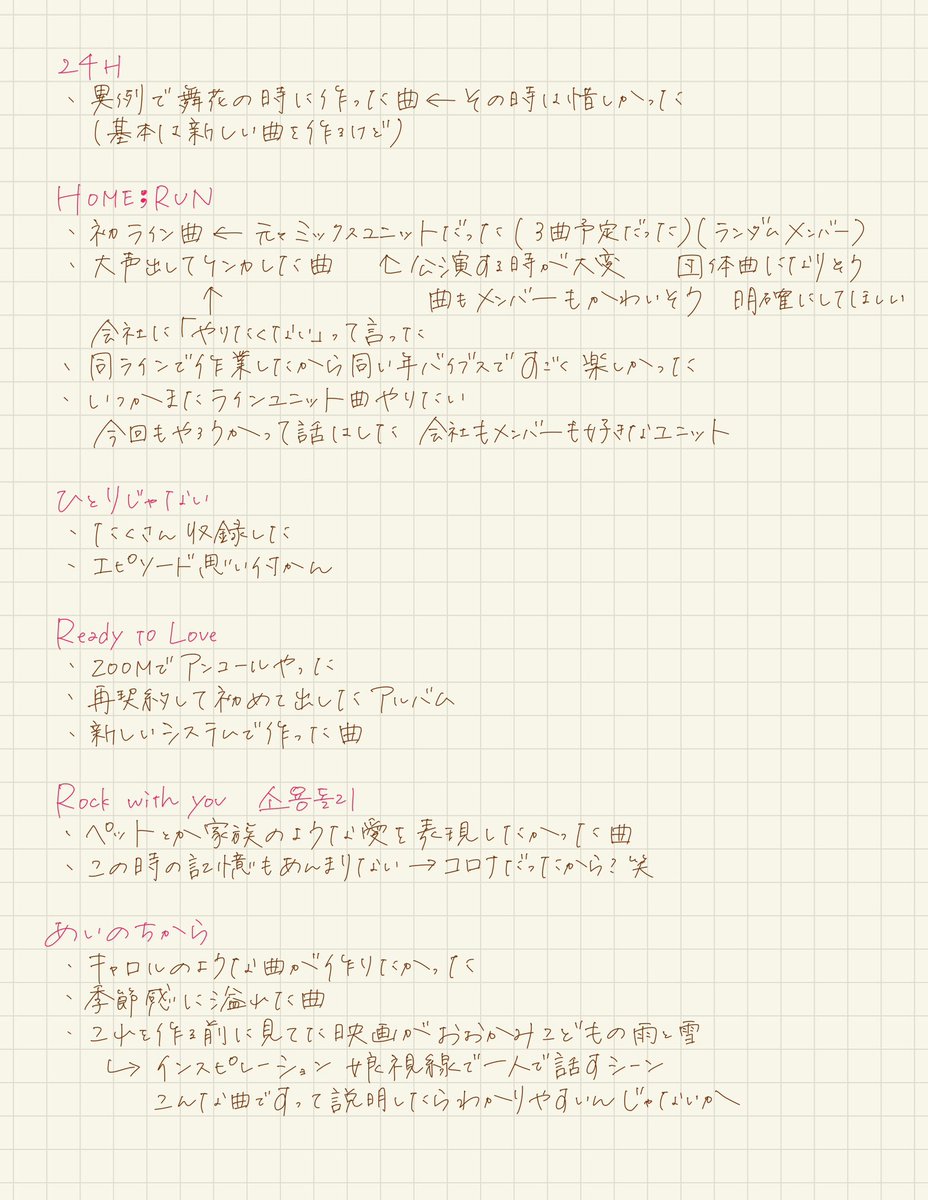 24H
・異例で舞花の時に作った曲 ← その時は惜しかった
(基本は新しい曲を作るけど)
HOME;RUN
・初ライン曲 ← 元々ミックスユニットだった(3曲予定だった)(ランダムメンバー)
・大声出してケンカした曲 ↑公演する時が大変 団体曲になりそう
↑ 曲もメンバーもかわいそう 明確にしてほしい
会社に「やりたくない」って言った
・同ラインで作業したから同い年バイブスですごく楽しかった
・いつかまたラインユニット曲やりたい
今回もやろうかって話はした 会社もメンバーも好きなユニット
ひとりじゃない
・たくさん収録した
・エピソード思い付かん
Ready to Love
・ZOOMでアンコールやった
・再契約して初めて出したアルバム
・新しいシステムで作った曲
Rock with you 소용돌리
・ペットとか家族のような愛を表現したかった曲
・この時の記憶もあんまりない → コロナだったから?笑
あいのちから
・キャロルのような曲が作りたかった
・季節感に溢れた曲
・これを作る前に見てた映画がおおかみこどもの雨と雪
↳ インスピレーション 娘視線で一人で話すシーン
こんな曲ですって説明したらわかりやすいんじゃないか